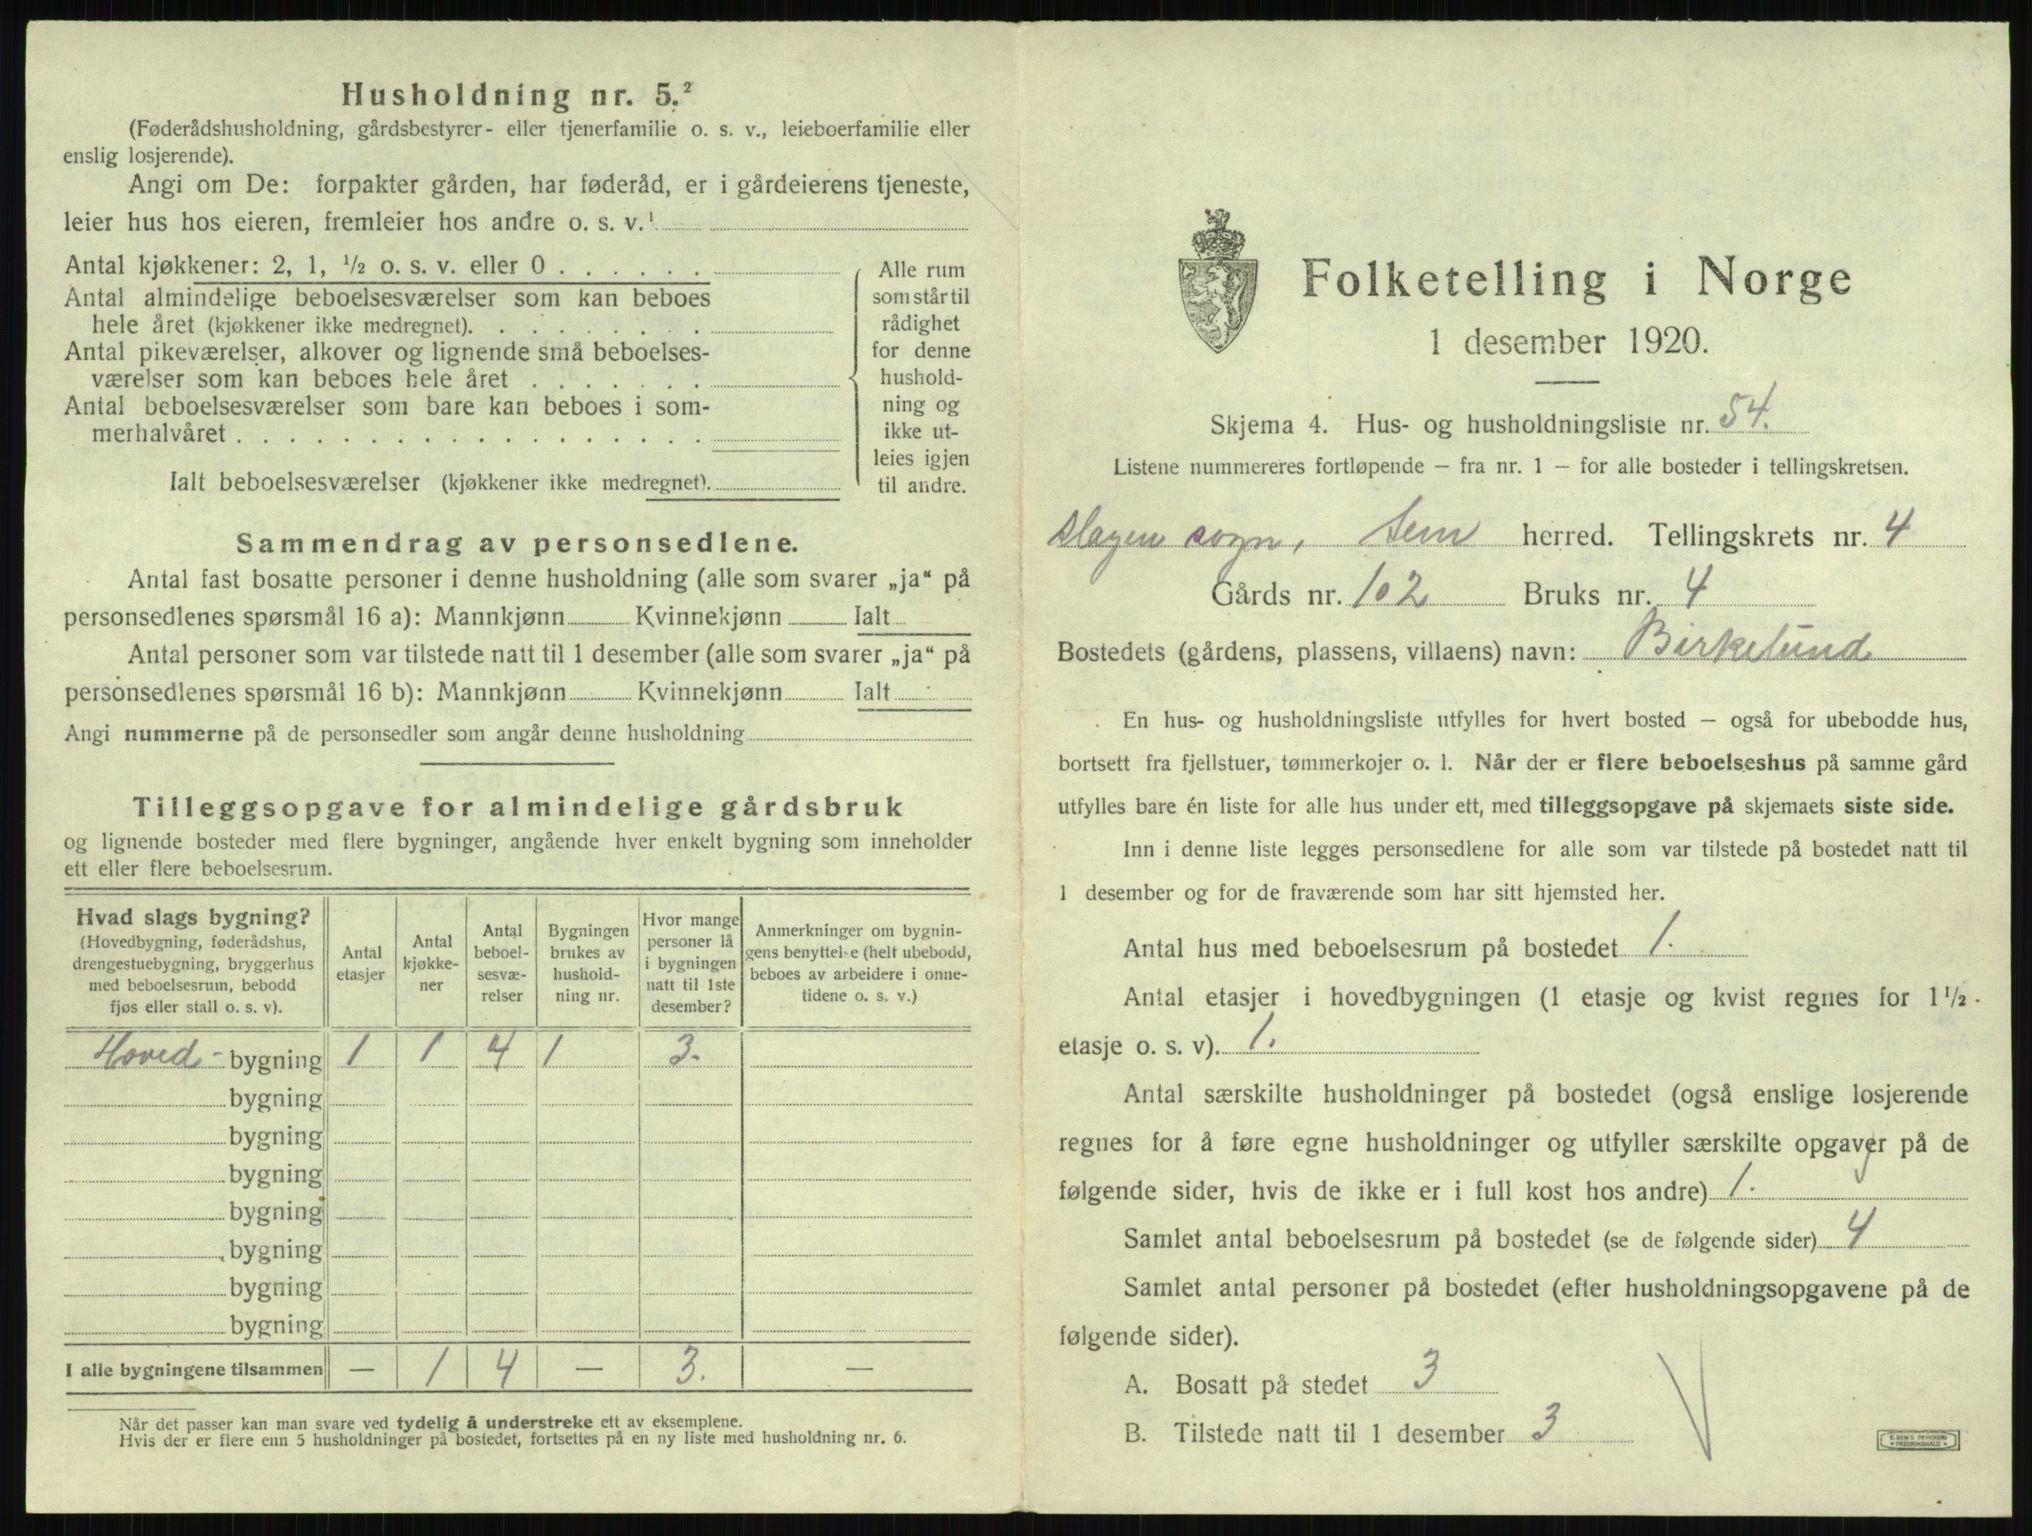 Husholdning nr. 5.²
(Føderådshusholdning, gårdsbestyrer- eller tjenerfamilie o. s. v., leieboerfamilie eller
enslig losjerende).
Angi om De: forpakter gården, har føderåd, er i gårdeierens tjeneste,
leier hus hos eieren, fremleier hos andre o. s. v.¹
Antal kjøkkener: 2, 1, ½ o. s. v. eller 0 . . . . . .
Antal almindelige beboelsesværelser som kan beboes
hele året (kjøkkener ikke medregnet). . . . . . . . .
Antal pikeværelser, alkover og lignende små beboelses-
værelser som kan beboes hele året . . . . . . .
Antal beboelsesværelser som bare kan beboes i som-
merhalvåret . . . . . . . . . . . . . . . . . .
Ialt beboelsesværelser (kjøkkener ikke medregnet).
Alle rum
som står til
rådighet
for denne
hushold-
ning og
ikke ut-
leies igjen
til andre.
Sammendrag av personsedlene.
Antal fast bosatte personer i denne husholdning (alle som svarer „ja“ på
personsedlenes spørsmål 16 a): Mannkjønn Kvinnekjønn Ialt
Antal personer som var tilstede natt til 1 desember (alle som svarer „ja“ på
personsedlenes spørsmål 16 b): Mannkjønn Kvinnekjønn Ialt
Angi nummerne på de personsedler som angår denne husholdning
Tilleggsopgave for almindelige gårdsbruk
og lignende bosteder med flere bygninger, angående hver enkelt bygning som inneholder
ett eller flere beboelsesrum.
Hvad slags bygning?
(Hovedbygning, føderådshus,
drengestuebygning, bryggerhus
med beboelsesrum, bebodd
fjøs eller stall o. s. v).
Antal
etasjer
Antal
kjøkke-
ner
Antal
beboel-
sesvæ-
relser
Bygningen
brukes av
hushold-
ning nr.
Hvor mange
personer lå
i bygningen
natt til 1ste
desember?
Anmerkninger om bygnin-
gens benyttelse (helt ubebodd,
beboes av arbeidere i onne-
tidene o. s. v.)
Hoved- bygning 1 1 4 1 3.
bygning
bygning
bygning
bygning
bygning
bygning
bygning
I alle bygningene tilsammen — 1 4 — 3. —
Når det passer kan man svare ved tydelig å understreke ett av eksemplene.
Hvis der er flere enn 5 husholdninger på bostedet, fortsettes på en ny liste med husholdning nr. 6.
Folketelling i Norge
1 desember 1920.
Skjema 4. Hus- og husholdningsliste nr. 54.
Listene nummereres fortløpende – fra nr. 1 – for alle bosteder i tellingskretsen.
Slagen sogn, Sem herred. Tellingskrets nr. 4
Gårds nr. 102 Bruks nr. 4
Bostedets (gårdens, plassens, villaens) navn: Birkelund
En hus- og husholdningsliste utfylles for hvert bosted – også for ubebodde hus,
bortsett fra fjellstuer, tømmerkojer o. l. Når der er flere beboelseshus på samme gård
utfylles bare én liste for alle hus under ett, med tilleggsopgave på skjemaets siste side.
Inn i denne liste legges personsedlene for alle som var tilstede på bostedet natt til
1 desember og for de fraværende som har sitt hjemsted her.
Antal hus med beboelsesrum på bostedet 1.
Antal etasjer i hovedbygningen (1 etasje og kvist regnes for 1½
etasje o. s. v). 1.
Antal særskilte husholdninger på bostedet (også enslige losjerende
regnes for å føre egne husholdninger og utfyller særskilte opgaver på de
følgende sider, hvis de ikke er i full kost hos andre) 1.
Samlet antal beboelsesrum på bostedet (se de følgende sider) 4
Samlet antal personer på bostedet (efter husholdningsopgavene på de
følgende sider).
A. Bosatt på stedet 3
B. Tilstede natt til 1 desember 3